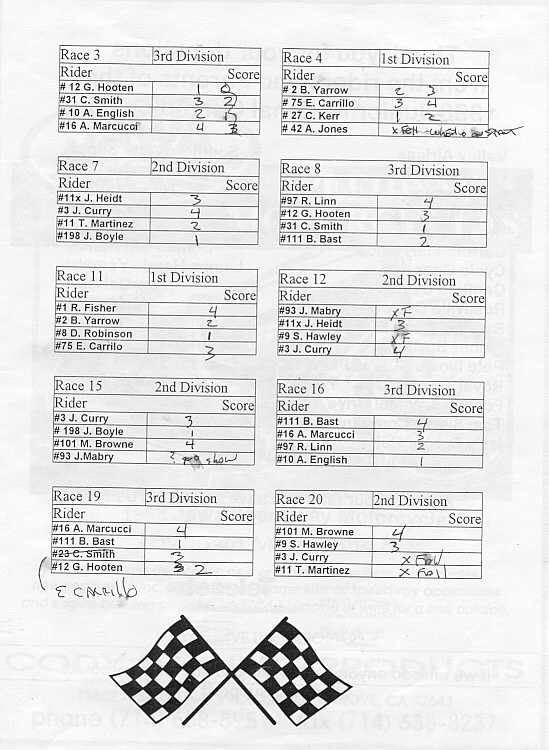 Race 3 3rd Division
Rider Score
# 12 G. Hooten 1 0
#31 C. Smith 3 2
# 10 A. English 2
#16 A. Marcucci 4 3
Race 4 1st Division
Rider Score
# 2 B. Yarrow 2 3
# 75 E. Carrillo 3 4
# 27 C. Kerr 1 2
# 42 A. Jones x Fell
Race 7 2nd Division
Rider Score
#11x J. Heidt 3
#3 J. Curry 4
#11 T. Martinez 2
#198 J. Boyle 1
Race 8 3rd Division
Rider Score
#97 R. Linn 4
#12 G. Hooten 3
#31 C. Smith 1
#111 B. Bast 2
Race 11 1st Division
Rider Score
#1 R. Fisher 4
#2 B. Yarrow 2
#8 D. Robinson 1
#75 E. Carrilo 3
Race 12 2nd Division
Rider Score
#93 J. Mabry XF
#11x J. Heidt 3
#9 S. Hawley XF
#3 J. Curry 4
Race 15 2nd Division
Rider Score
#3 J. Curry 3
# 198 J. Boyle 1
#101 M. Browne 4
#93 J.Mabry ? no show
Race 16 3rd Division
Rider Score
#111 B. Bast 4
#16 A. Marcucci 3
#97 R. Linn 2
#10 A. English 1
Race 19 3rd Division
Rider Score
#16 A. Marcucci 4
#111 B. Bast 1
#23 C. Smith 3
#12 G. Hooten 2
E CARRILLO
Race 20 2nd Division
Rider Score
#101 M. Browne 4
#9 S. Hawley 3
#3 J. Curry X Fell
#11 T. Martinez X Fell